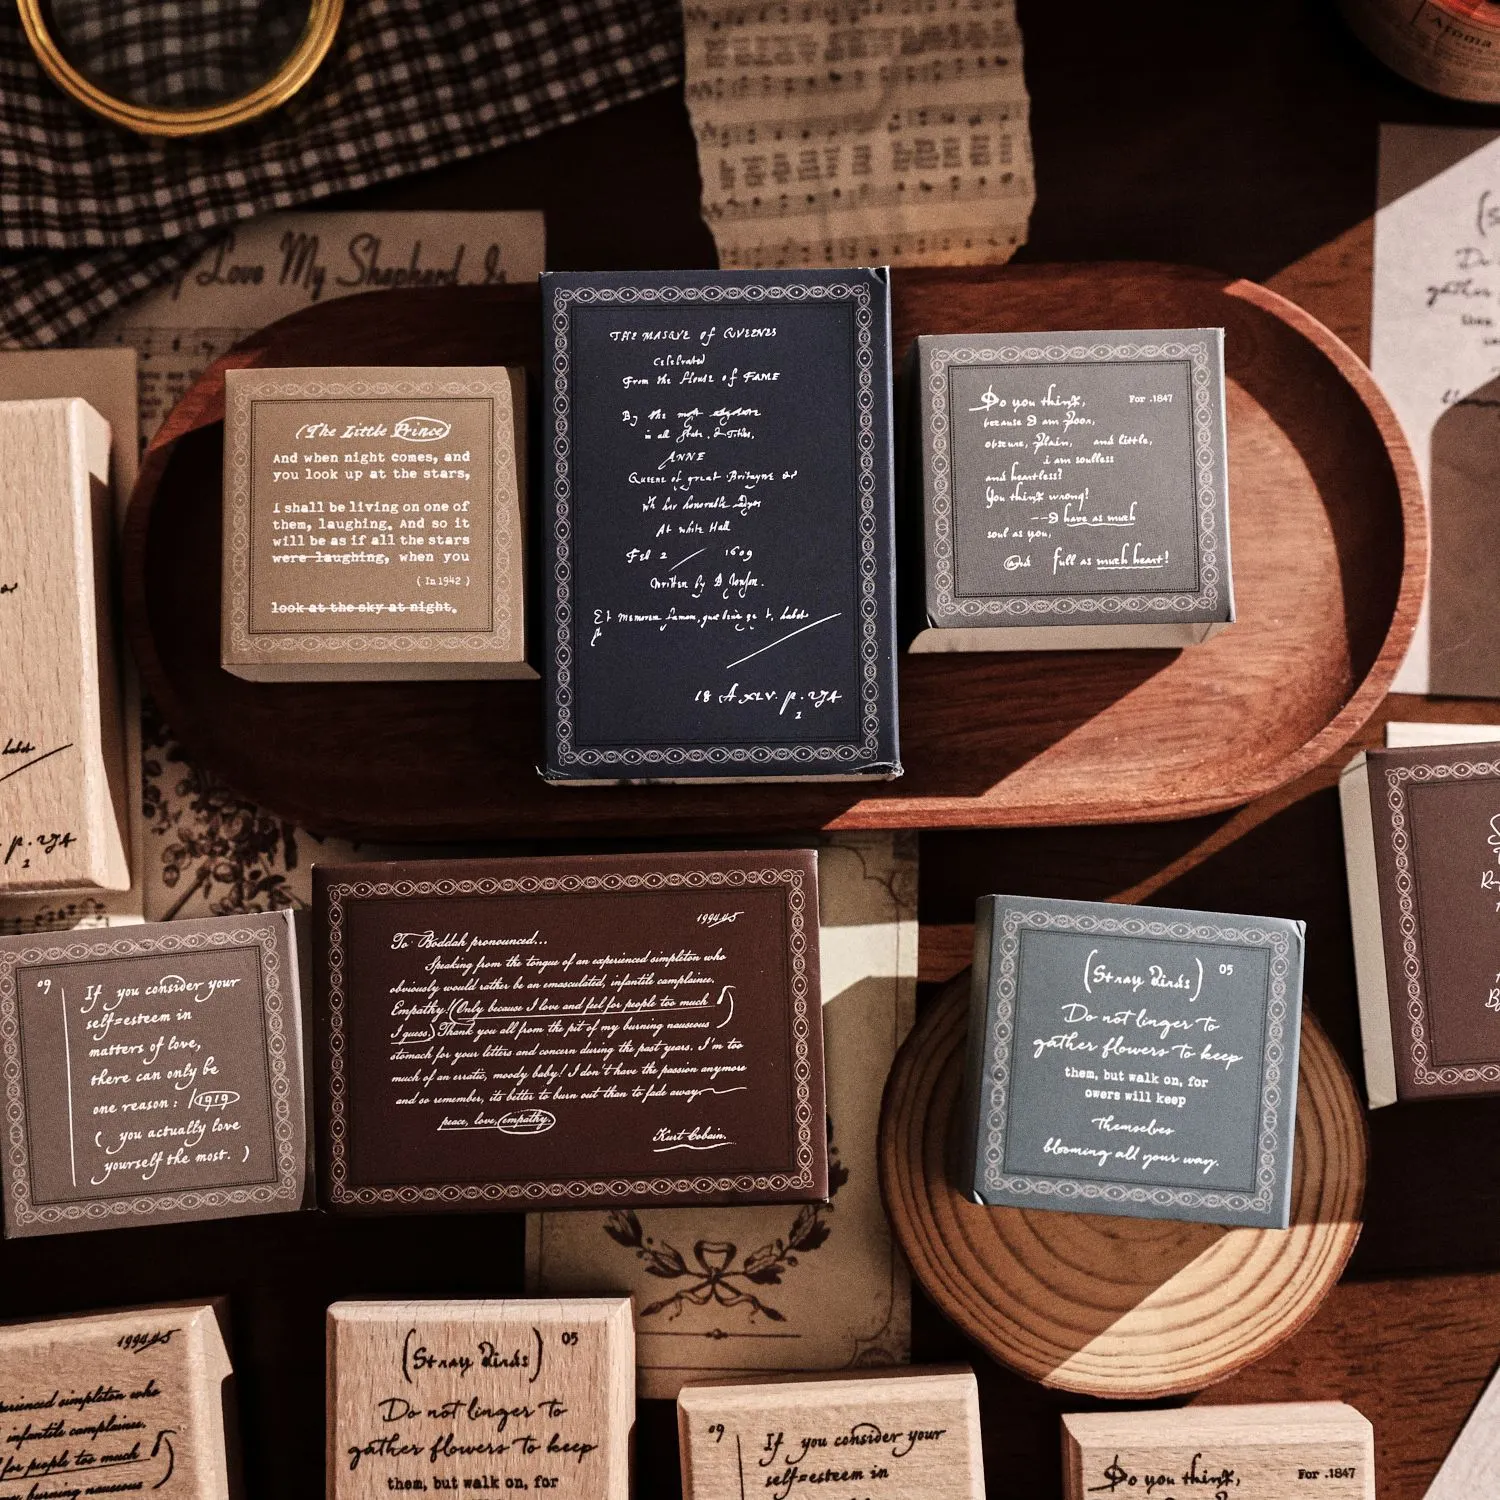 Aroma
Love My Shepherd Is
(The Little Prince)
And when night comes, and
you look up at the stars,
i shall be living on one of
them, laughing. And so it
will be as if all the stars
were laughing, when you
( In 1942 )
look at the sky at night.
THE MASQVE of QVEENES
Celebrated
From the House of FAME
By the most
in all State, & Titles,
ANNE
Queene of great Britayne &r
Wh her honorable Ladyes
At white Hall
Feb 2 / 1609
Written by B Jonson.
Et memorem famam, quae bene ge t, habet
18 A XLV. p. 274
2
Do you think, For .1847
because I am poor,
obscure, plain, and little,
i am soulless
and heartless?
You think wrong!
--I have as much
soul as you,
and full as much heart!
Do
gather
habet
p. 274
2
09
If you consider your
self=esteem in
matters of love,
there can only be
one reason : 1919
( you actually love
yourself the most. )
1994.4.5
To Boddah pronounced...
Speaking from the tongue of an experienced simpleton who
obviously would rather be an emasculated, infantile complainee.
Empathy!(Only because I love and feel for people too much
I guess) Thank you all from the pit of my burning nauseous
stomach for your letters and concern during the past years. I'm too
much of an erratic, moody baby! I don't have the passion anymore
and so remember, its better to burn out than to fade away.
peace, love, empathy.
Kurt Cobain.
(Stray Birds) 05
Do not linger to
gather flowers to keep
them, but walk on, for
owers will keep
themselves
blooming all your way.
1994.4.5
erienced simpleton who
infantile complainee.
for people too much
my burning nauseous
(Stray Birds) 05
Do not linger to
gather flowers to keep
them, but walk on, for
09
If you consider your
self=esteem in
Do you think, For .1847